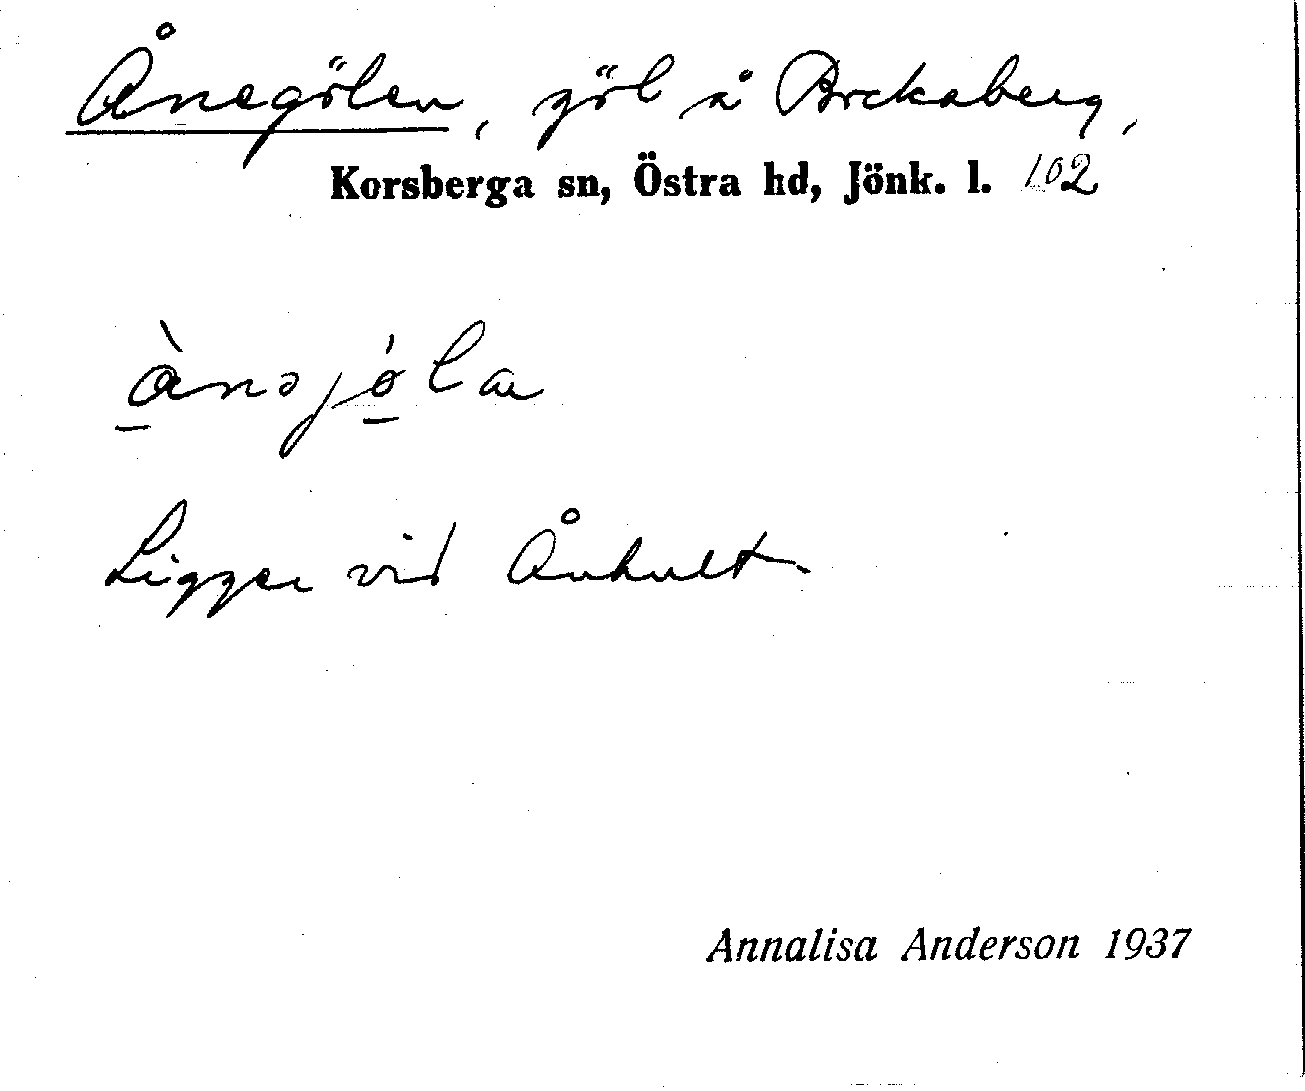 Ånegölen, göl å Bockaberg,
Korsberga sn, Östra hd, Jönk. l. 102
ànəjó̠la
Ligger vid Ånhult
Annalisa Anderson 1937